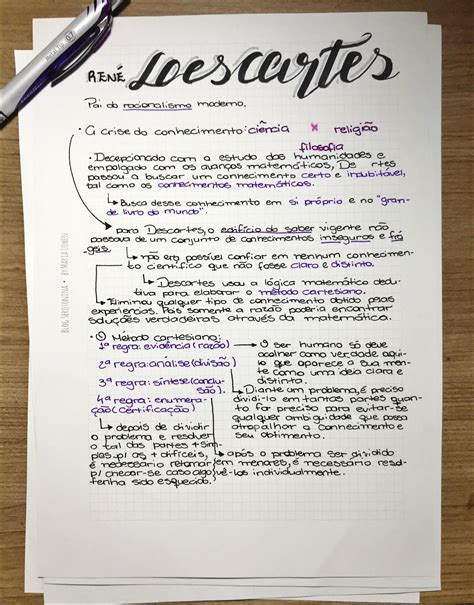 RENÉ Descartes
Pai do racionalismo moderno.
• A crise do conhecimento: ciência x religião
filosofia
• Decepcionado com a estudo das humanidades e
empolgado com os avanços matemáticos, Des rtes
passou a buscar um conhecimento certo e indubitável,
tal como os conhecimentos matemáticos.
↳ Busca desse conhecimento em si próprio e no "gran-
de livro do mundo".
para Descartes, o edifício do saber vigente não
passava de um conjunto de conhecimentos inseguros e frá
geis.
↳ não era possível confiar em nenhum conhecimen-
to científico que não fosse claro e distinto.
↳ Descartes usou a lógica matemática dedu-
tiva para elaborar o método cartesiano.
↳ Eliminou qualquer tipo de conhecimento obtido pelas
experiências. Pois somente a razão poderia encontrar
soluções verdadeiras através da matemática.
• O Método cartesiano:
1ª regra: evidência (razão)
2ª regra: análise (divisão)
3ª regra: síntese (conclu-
são).
4ª regra: enumera-
ção (certificação)
→ O ser humano só deve
acolher como verdade aqui-
lo que aparece a sua men-
te como uma ideia clara e
distinta.
↳ Diante um problema, é preciso
dividi-lo em tantas partes quan-
to for preciso para evitar-se
qualquer ambiguidade que possa
atrapalhar o conhecimento e
seu obtimento.
↳ depois de dividir
o problema e resolver
o tal das partes + sim-
ples p/ as + difíceis,
é necessário retomar
p/ checar-se caso algo
tenha sido esquecido.
↳ após o problema ser dividido
em menores, é necessário resol-
vê-los individualmente.
BLOG SEROTONINDIA • BY